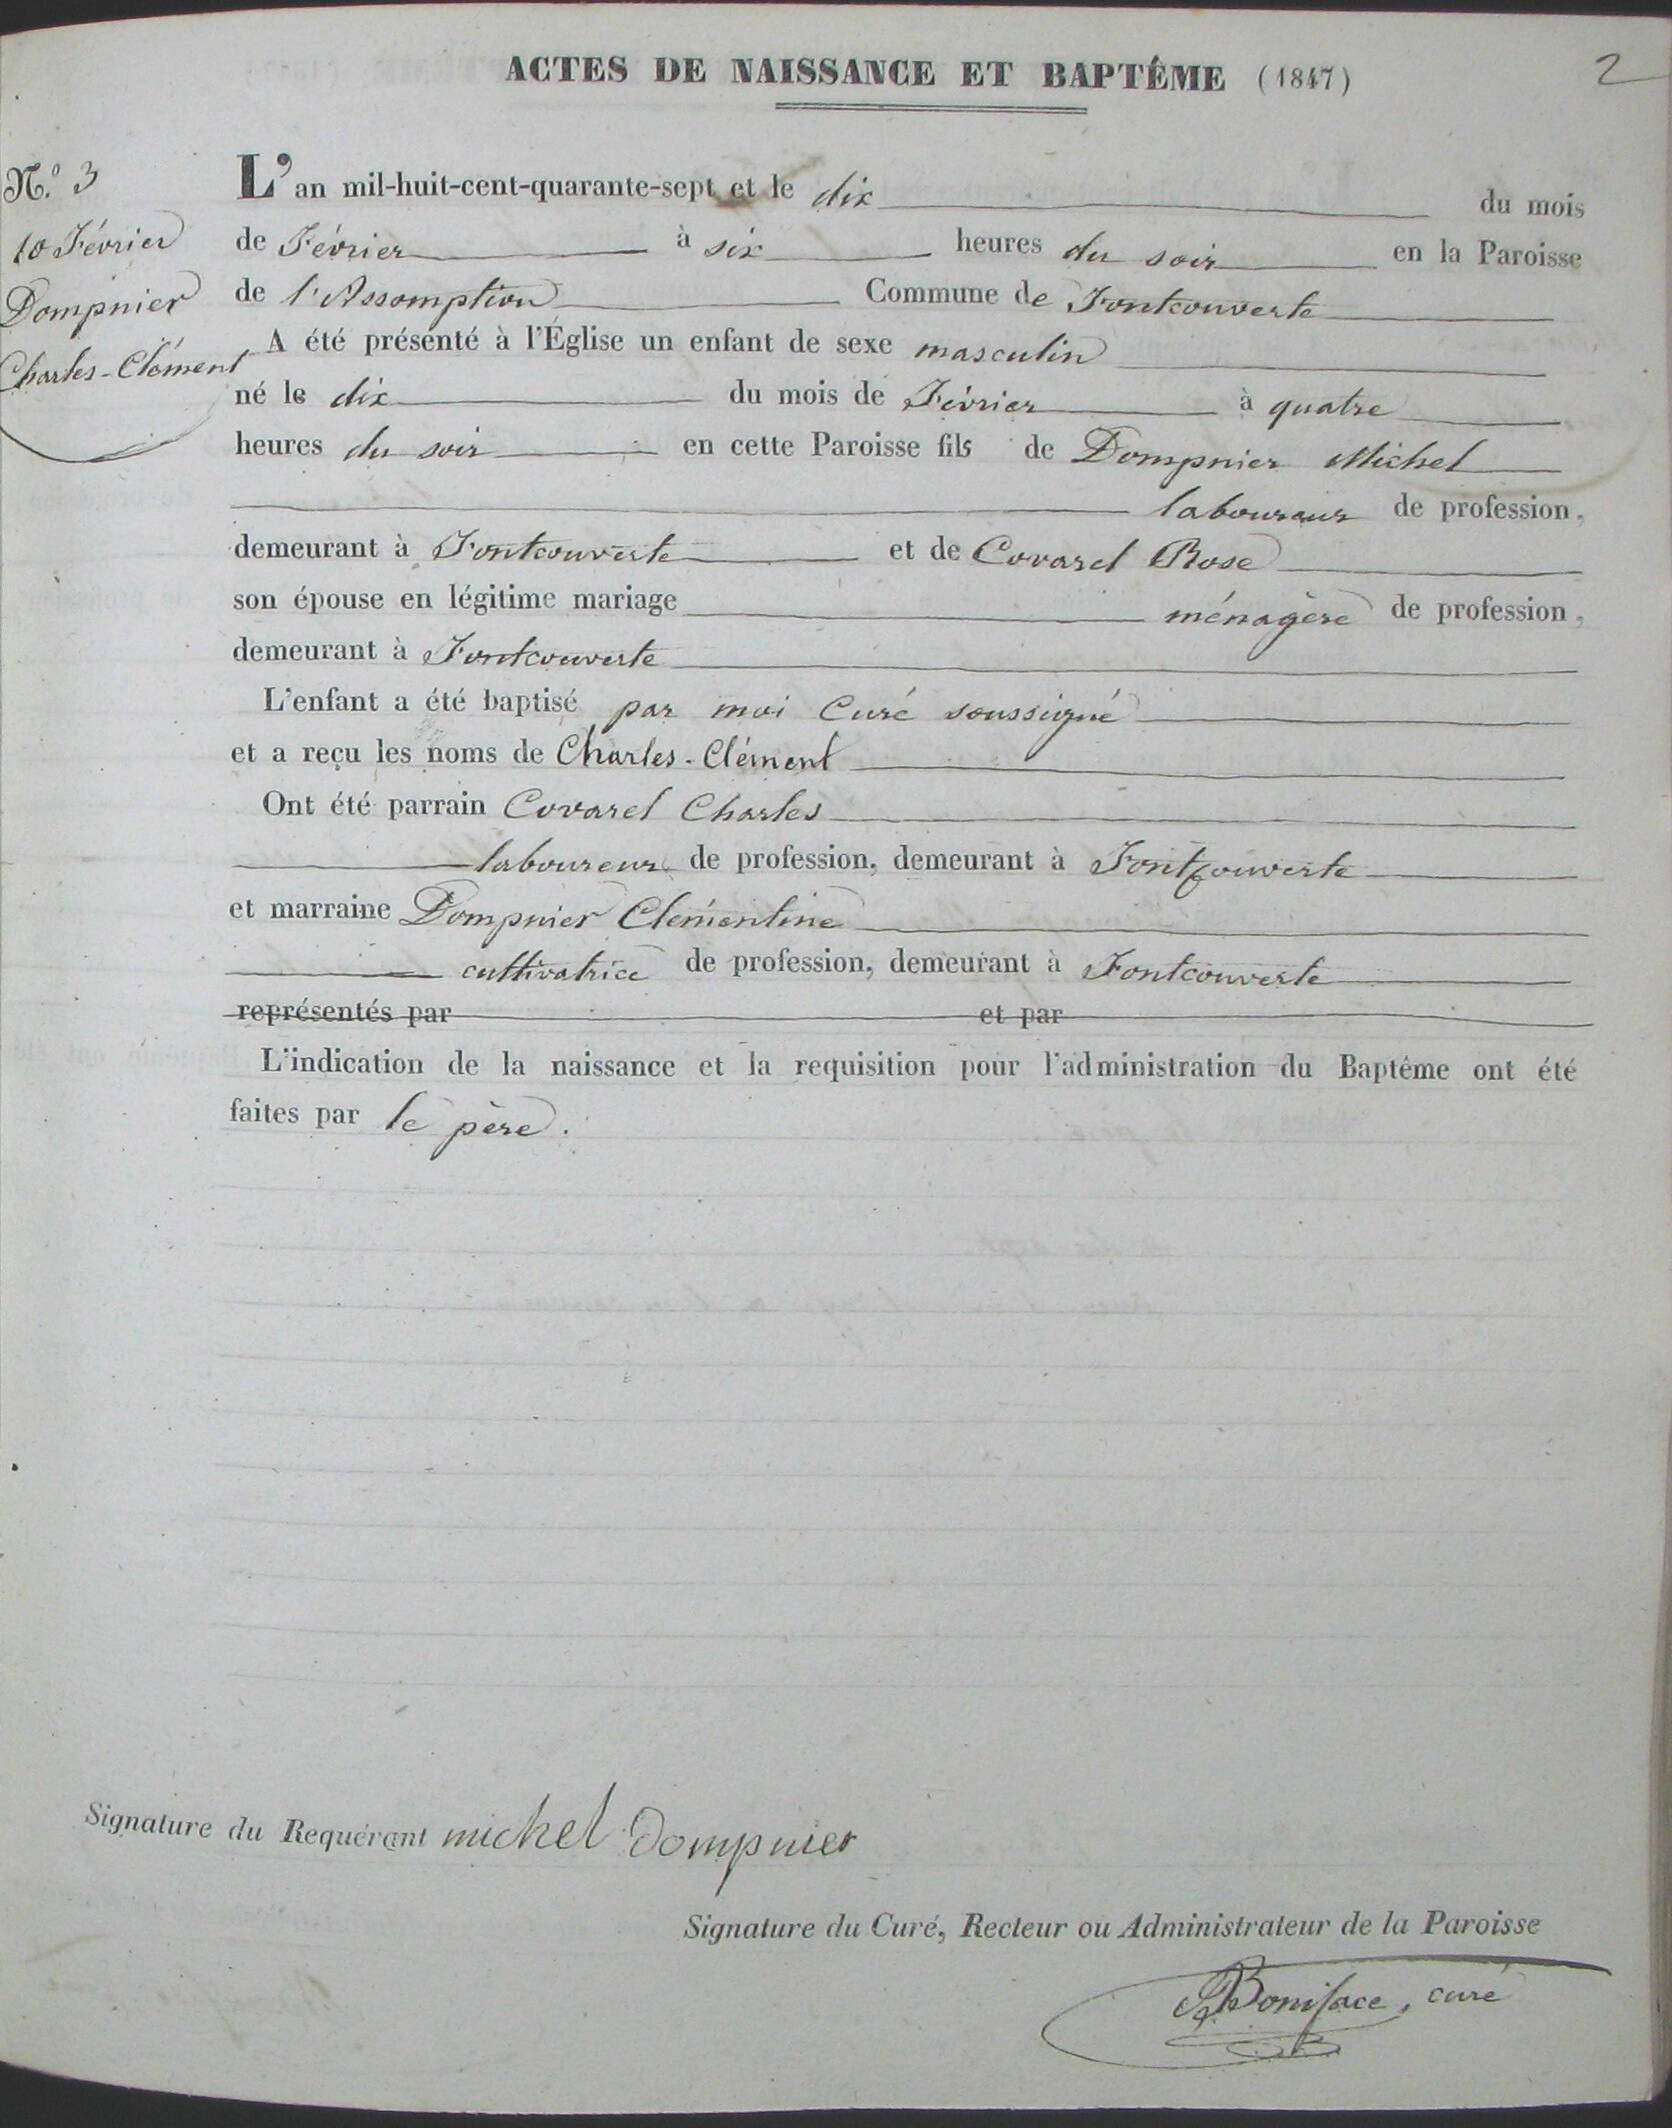 ACTES DE NAISSANCE ET BAPTÊME (1847)
2
N.º 3
10 Février
Dompnier
Charles-Clément
L'an mil-huit-cent-quarante-sept et le dix du mois
de Février à six heures du soir en la Paroisse
de l'Assomption Commune de Fontcouverte
A été présenté à l'Église un enfant de sexe masculin
né le dix du mois de Février à quatre
heures du soir en cette Paroisse fils de Dompnier Michel
laboureur de profession,
demeurant à Fontcouverte et de Covarel Rose
son épouse en légitime mariage ménagère de profession,
demeurant à Fontcouverte
L'enfant a été baptisé par moi Curé soussigné
et a reçu les noms de Charles-Clément
Ont été parrain Covarel Charles
laboureur de profession, demeurant à Fontcouverte
et marraine Dompnier Clémentine
cultivatrice de profession, demeurant à Fontcouverte
représentés par et par
L'indication de la naissance et la requisition pour l'administration du Baptême ont été
faites par le père.
Signature du Requérant michel Dompnier
Signature du Curé, Recteur ou Administrateur de la Paroisse
Boniface, curé